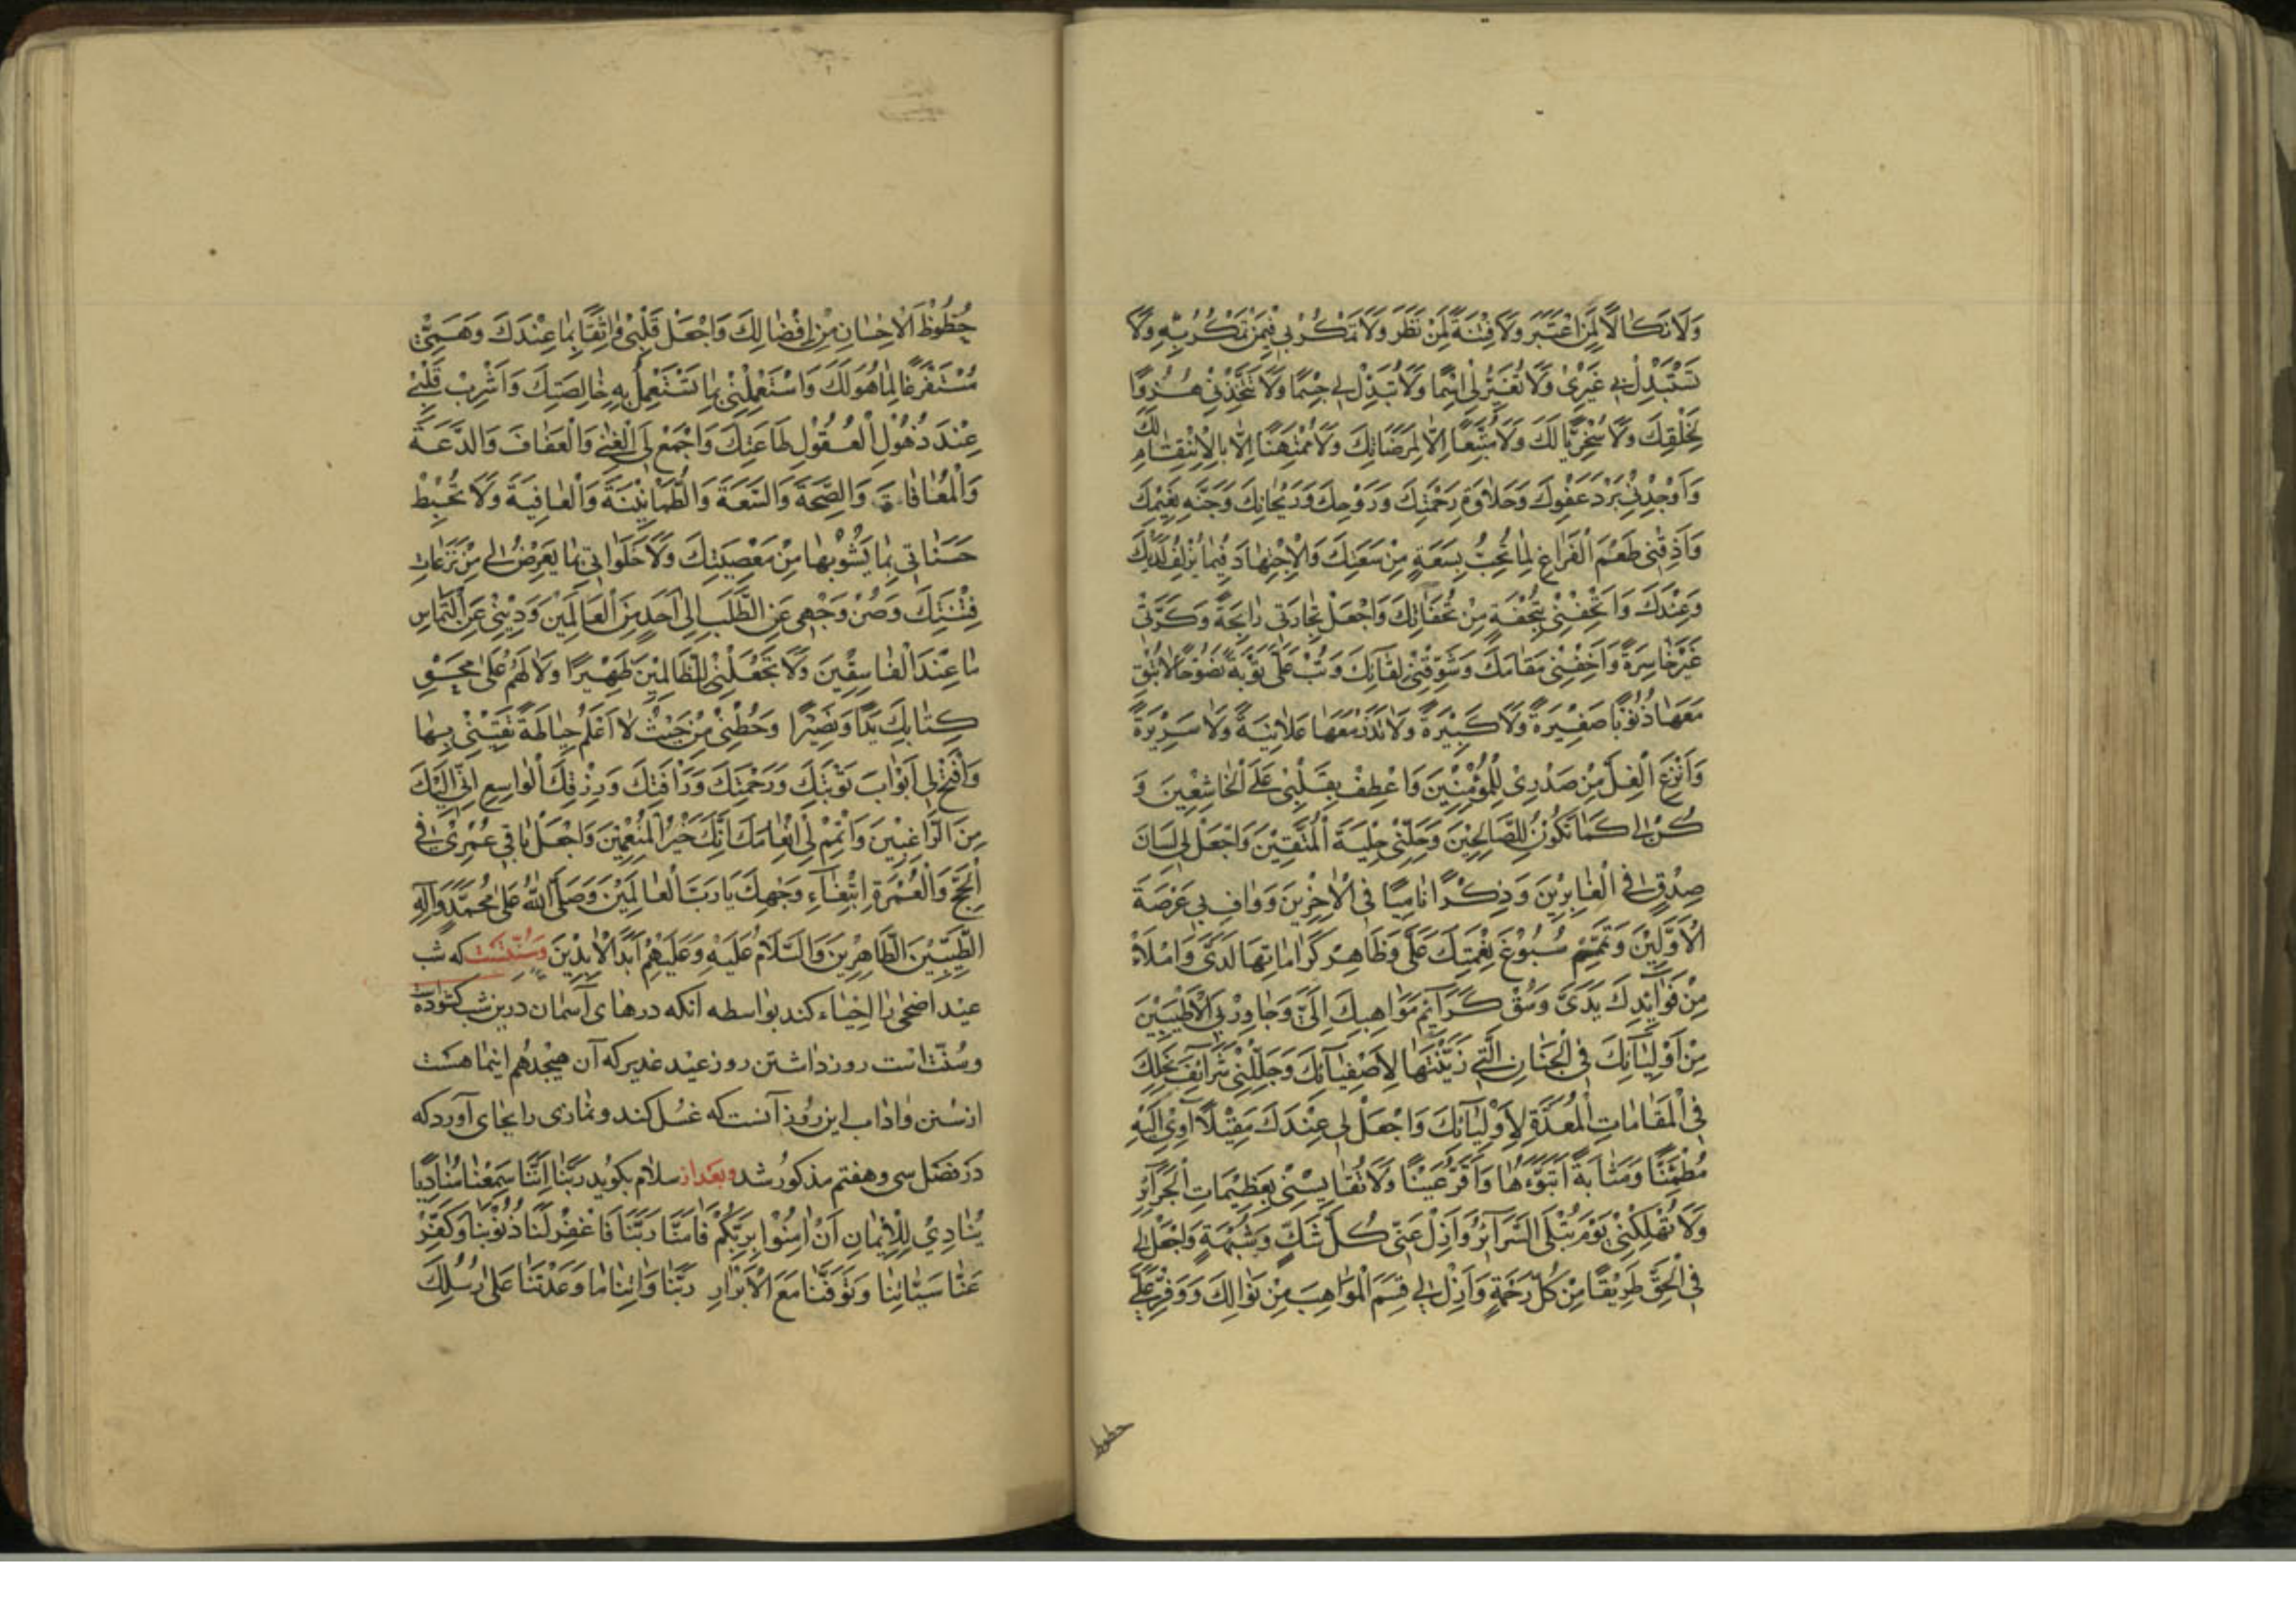 وَلَا نَكَالًا لِمَنِ اعْتَبَرَ وَلَا فِتْنَةً لِمَنْ نَظَرَ وَلَا تَمْكُرْ بِي فِيمَنْ تَمْكُرُ بِهِ وَلَا
تَسْتَبْدِلْ بِي غَيْرِي وَلَا تُغَيِّرْ لِي اسْمًا وَلَا تُبَدِّلْ لِي جِسْمًا وَلَا تَتَّخِذْنِي هُزُوًا
لِخَلْقِكَ وَلَا سُخْرِيًّا لَكَ وَلَا مُتَّبِعًا إِلَّا لِمَرْضَاتِكَ وَلَا مُمْتَهَنًا إِلَّا بِالْاِنْتِقَامِ لَكَ
وَأَوْجِدْنِي بَرْدَ عَفْوِكَ وَحَلَاوَةَ رَحْمَتِكَ وَرَوْحِكَ وَرَيْحَانِكَ وَجَنَّةِ نَعِيمِكَ
وَأَذِقْنِي طَعْمَ الْفَرَاغِ لِمَا تُحِبُّ بِسَعَةٍ مِنْ سَعَتِكَ وَالْاِجْتِهَادَ فِيمَا يُزْلِفُ لَدَيْكَ
وَعِنْدَكَ وَأَتْحِفْنِي بِتُحْفَةٍ مِنْ تُحَفَاتِكَ وَاجْعَلْ تِجَارَتِي رَابِحَةً وَكَرَّتِي
غَيْرَ خَاسِرَةٍ وَأَخِفْنِي مَقَامَكَ وَشَوِّقْنِي لِقَائَكَ وَتُبْ عَلَيَّ تَوْبَةً نَصُوحًا لَا تُبْقِ
مَعَهَا ذُنُوبًا صَغِيرَةً وَلَا كَبِيرَةً وَلَا تَذَرْ مَعَهَا عَلَانِيَةً وَلَا سَرِيرَةً
وَانْزَعِ الْغِلَّ مِنْ صَدْرِي لِلْمُؤْمِنِينَ وَاعْطِفْ بِقَلْبِي عَلَى الْخَاشِعِينَ وَ
كُنْ لِي كَمَا تَكُونُ لِلصَّالِحِينَ وَحَلِّنِي حِلْيَةَ الْمُتَّقِينَ وَاجْعَلْ لِي لِسَانَ
صِدْقٍ فِي الْغَابِرِينَ وَذِكْرًا نَامِيًا فِي الْآخِرِينَ وَوَافِ بِي عَرْصَةَ
الْأَوَّلِينَ وَتَمِّمْ سُبُوغَ نِعْمَتِكَ عَلَيَّ وَظَاهِرْ كَرَامَاتِهَا لَدَيَّ وَامْلَأْ
مِنْ فَوَائِدِكَ يَدَيَّ وَسُقْ كَرَائِمَ مَوَاهِبِكَ إِلَيَّ وَجَاوِرْ بِيَ الْأَطْيَبِينَ
مِنْ أَوْلِيَائِكَ فِي الْجِنَانِ الَّتِي زَيَّنْتَهَا لِأَصْفِيَائِكَ وَجَلِّلْنِي شَرَائِفَ نِحَلِكَ
فِي الْمَقَامَاتِ الْمُعَدَّةِ لِأَوْلِيَائِكَ وَاجْعَلْ لِي عِنْدَكَ مَقِيلًا آوِي إِلَيْهِ
مُطْمَئِنًّا وَمَثَابَةً أَتَبَوَّءُهَا وَأَقَرُّ عَيْنًا وَلَا تُقَايِسْنِي بِعَظِيمَاتِ الْجَرَائِرِ
وَلَا تُهْلِكْنِي يَوْمَ تُبْلَى السَّرَائِرُ وَأَزِلْ عَنِّي كُلَّ شَكٍّ وَشُبْهَةٍ وَاجْعَلْ لِي
فِي الْحَقِّ طَرِيقًا مِنْ كُلِّ رَحْمَةٍ وَأَجْزِلْ لِي قِسَمَ الْمَوَاهِبِ مِنْ نَوَالِكَ وَوَفِّرْ عَلَيَّ
حظوظ
حُظُوظَ الْاِحْسَانِ مِنْ إِفْضَالِكَ وَاجْعَلْ قَلْبِي وَاثِقًا بِمَا عِنْدَكَ وَهَمِّي
مُسْتَفْرَغًا لِمَا هُوَ لَكَ وَاسْتَعْمِلْنِي بِمَا تَسْتَعْمِلُ بِهِ خَالِصَتِكَ وَأَشْرِبْ قَلْبِي
عِنْدَ ذُهُولِ الْعُقُولِ طَاعَتِكَ وَاجْمَعْ لِيَ الْغِنَى وَالْعَفَافَ وَالدَّعَةَ
وَالْمُعَافَاةَ وَالصِّحَّةَ وَالسَّعَةَ وَالطُّمَأْنِينَةَ وَالْعَافِيَةَ وَلَا تُحْبِطْ
حَسَنَاتِي بِمَا يَشُوبُهَا مِنْ مَعْصِيَتِكَ وَلَا خَلَوَاتِي بِمَا يَعْرِضُ لِي مِنْ نَزَغَاتِ
فِتْنَتِكَ وَصُنْ وَجْهِي عَنِ الطَّلَبِ إِلَى أَحَدٍ مِنَ الْعَالَمِينَ وَدِينِي عَنِ الْتِمَاسِ
مَا عِنْدَ الْفَاسِقِينَ وَلَا تَجْعَلْنِي لِلظَّالِمِينَ ظَهِيرًا وَلَا لَهُمْ عَلَى مَحْوِ
كِتَابِكَ يَدًا وَنَصِيرًا وَحُطْنِي مِنْ حَيْثُ لَا أَعْلَمُ حِيَاطَةً تَقِينِي بِهَا
وَافْتَحْ لِي أَبْوَابَ تَوْبَتِكَ وَرَحْمَتِكَ وَرَأْفَتِكَ وَرِزْقِكَ الْوَاسِعِ إِنِّي إِلَيْكَ
مِنَ الرَّاغِبِينَ وَأَتْمِمْ لِي إِنْعَامَكَ إِنَّكَ خَيْرُ الْمُنْعِمِينَ وَاجْعَلْ بَاقِي عُمْرِي فِي
الْحَجِّ وَالْعُمْرَةِ ابْتِغَاءَ وَجْهِكَ يَا رَبَّ الْعَالَمِينَ وَصَلَّى اللّٰهُ عَلَى مُحَمَّدٍ وَآلِهِ
الطَّيِّبِينَ الطَّاهِرِينَ وَالسَّلَامُ عَلَيْهِ وَعَلَيْهِمْ أَبَدَ الْآبِدِينَ وسُنّتست که شب
عید اضحی را احیاء کند بواسطه آنکه درهای آسمان درین شب کشوده است
وسُنّتست روز داشتن روز عید غدیر که آن هیجدهم اینماهست
از سُنن و اداب این روز آنست که غسل کند و نمازی را بجای آورد که
در فصل سی و هفتم مذکور شد و بعد از سلام بکوید رَبَّنَا إِنَّنَا سَمِعْنَا مُنَادِيًا
يُنَادِي لِلْإِيمَانِ أَنْ آمِنُوا بِرَبِّكُمْ فَآمَنَّا رَبَّنَا فَاغْفِرْ لَنَا ذُنُوبَنَا وَكَفِّرْ
عَنَّا سَيِّئَاتِنَا وَتَوَفَّنَا مَعَ الْأَبْرَارِ رَبَّنَا وَآتِنَا مَا وَعَدْتَنَا عَلَى رُسُلِكَ